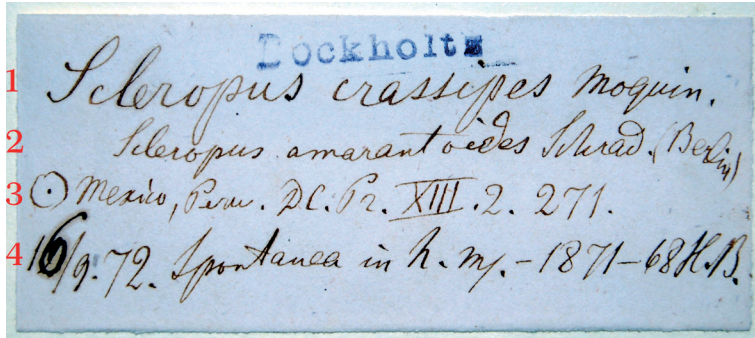 Dockholtz
1 Scleropus crassipes Moquin.
2 Scleropus amarantoides Schrad. (Berlin)
3 ⊙ Mexico, Peru. D.C. Pr. XIII. 2. 271.
4 16/9. 72. Spontanea in h. m. - 1871 - 68 H.B.